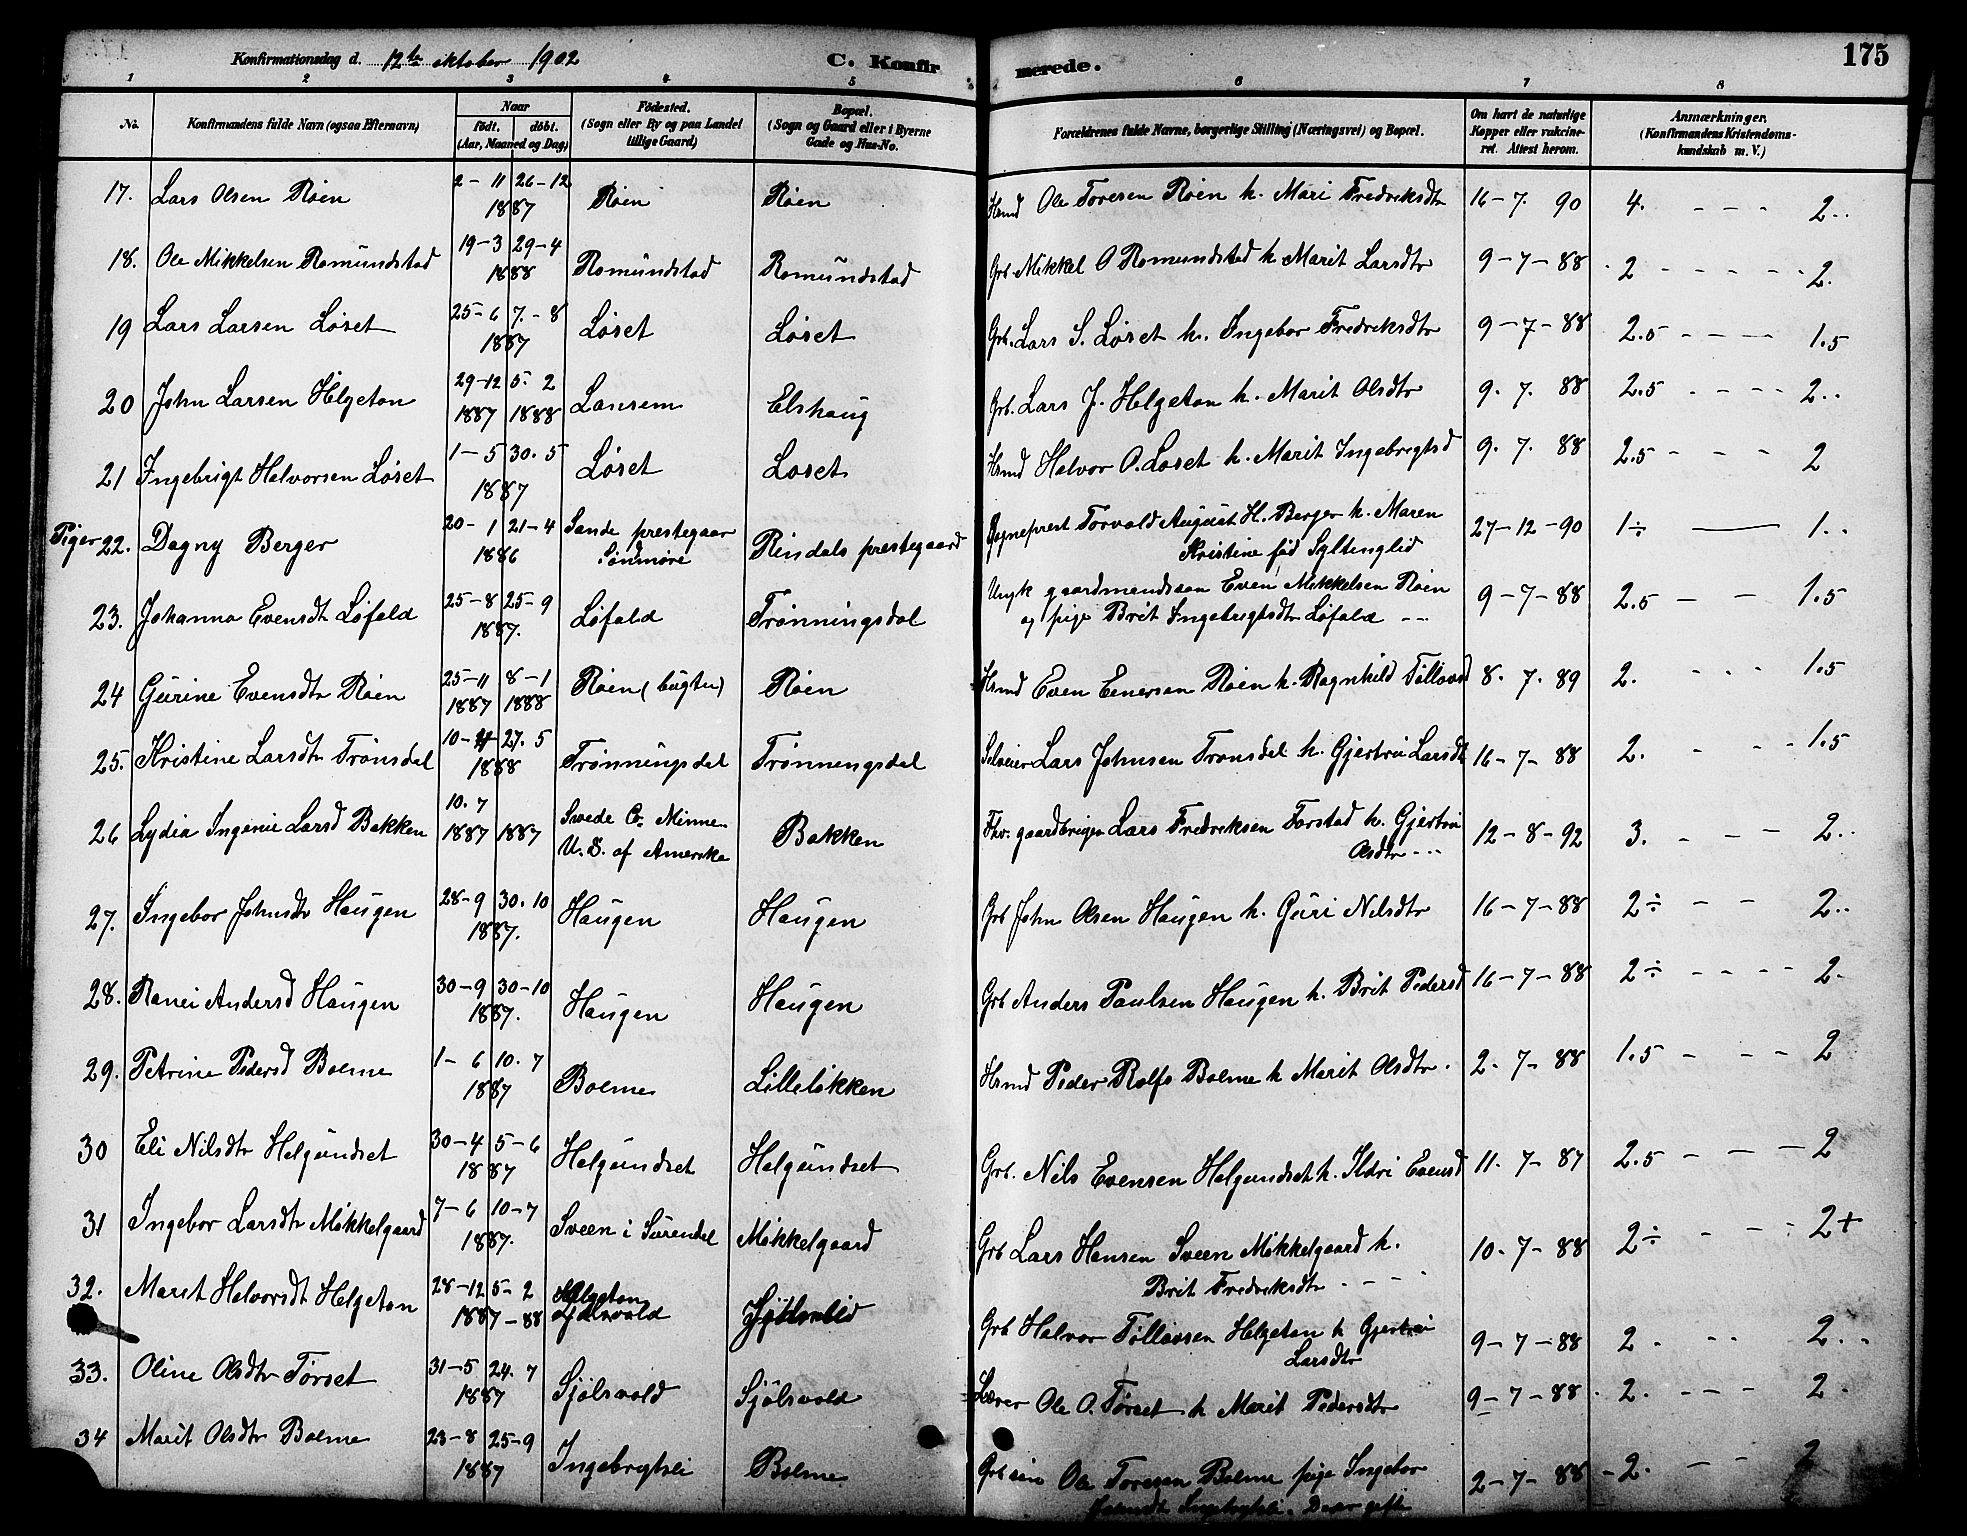 Konfirmationsdag d. 12te oktober 1902 C. Konfirmerede. 175
1 2 3 4 5 6 7 8
No. Konfirmandens fulde Navn (ogsaa Efternavn) Naar født. døbt. (Aar, Maaned og Dag) Fødested. (Sogn eller By og paa Landet tillige Gaard) Bopæl. (Sogn og Gaard eller i Byerne Gade og Hus-No. Forældrenes fulde Navne, borgerlige Stilling (Næringsvei) og Bopæl. Om havt de naturlige Kopper eller vaccineret. Attest herom. Anmærkninger. (Konfirmandens Kristendomskundskab m. V.)
17. Lars Olsen Røen 2-11 26-12 1887 Røen Røen Hsmd Ole Toresen Røen h. Mari Fredriksdtr 16-7. 90 4. - - - 2..
18. Ole Mikkelsen Romundstad 19-3 29-4 1888 Romundstad Romundstad Grb. Mikkel O Romundstad h. Marit Larsdtr 9-7-88 2 - - - - - 2.
19 Lars Larsen Løset 25-6 7.-8 1887 Løset Løset Grb. Lars S. Løset h. Ingebor Fredriksdtr 9-7-88 2.5 - - - - 1.5
20 John Larsen Helgeton 29-12 5. 2 1887 1888 Lansem Elshaug Grb. Lars J. Helgeton h. Marit Olsdtr 9. 7. 88 2.5 - - - - 2..
21 Ingebrigt Halvorsen Løset 1-5 30. 5 1887 Løset Løset Hsmd Halvor O. Løset h. Marit Ingebregtsd 9. 7. 88 2.5 - - - 2
Piger 22. Dagny Berger 20-1 21-4 1886 Sande prestegaar Søndmøre Rindals prestegaard Sogneprest Torvald August H. Berger h. Maren 27-12-90 1÷ — 1..
Kristine fød
23. Johanna Evensdt Løfald 25-8 25-9 1887. Løfald Trønningsdal Ungk gaardmandssøn Even Mikkelsen Røen 9-7-88 2.5 - - 1.5
og pige Brit Ingebrigtsdtr Løfald - -
24 Gurine Evensdtr Røen 25-11 8-1 1887 1888 Røen (bugten) Røen Hsmd Even Einersen Røen h. Ragnhild Tollovsd 8. 7. 89 2. - - 1.5
25. Kristine Larsdtr Trønsdal 10-4 27. 5 1888 Trønningsdal Trønningsdal Selveier Lars Johnsen Trønsdal h. Gjertru Larsdt 16-7-88 2. - - - 1.5
26 Lydia Ingerie Larsd Bakken 10. 7 1887 1887 Swede Co. Minne. U. S. af Amerika Bakken Fhv. gaardbruger Lars Fredriksen Forstad h. Gjertru 12-8-92 3. - - - 2..
Olsdtr - - -
27. Ingebor Johnsdtr Haugen 28-9 30. 10 1887. Haugen Haugen Grb John Olsen Haugen h. Guri Nilsdtr 16-7-88 2÷ - - 2..
28. Ranei Andersd Haugen 30-9 30-10 1887. Haugen Haugen Grb Anders Paulsen Haugen h. Brit Pedersd 16-7-88 2÷ - - - - 2.
29. Petrine Pedersd Bolme 1-6 10. 7 1887 Bolme Lilleløkken Hsmd Peder Rolfs Bolme h Marit Olsdtr. 2. 7-88 1.5 - - - 2
30 Eli Nilsdtr Helgundset 30-4 5-6 1887 Helgundset Helgundset Grb. Nils Evensen Helgundset h. Ildri Evensd 11. 7-87 2.5 - - - 2
31 Ingebor Larsdtr Mikkelgaard 7-6 10-7 1887. Sveen i Surendal Mikkelgaard Grb Lars Hansen Sveen Mikkelgaard h. 10-7-88 2÷ - - - 2+
Brit Fredriksdtr - - - -
32. Marit Halvorsdt Helgeton 28-12 5-2 1887-88 Helgeton Grb Halvor Tollovsen Helgeton h Gjertru 9-7-88 2 . . . 2..
Larsdtr
33. Oline Olsdtr Tørset 31-5 24. 7 1887 Sjølsvold Sjølsvold Lærer Ole O. Tørset h Marit Pedersdtr 9-7-88. 2. - - - 2.
34 Marit Olsdtr Bolme 23-8 25-9 1887 Ingebrgtsli Bolme Grb søn Ole Toresen Bolme pige Ingebor 2-7-88 2. - - 2